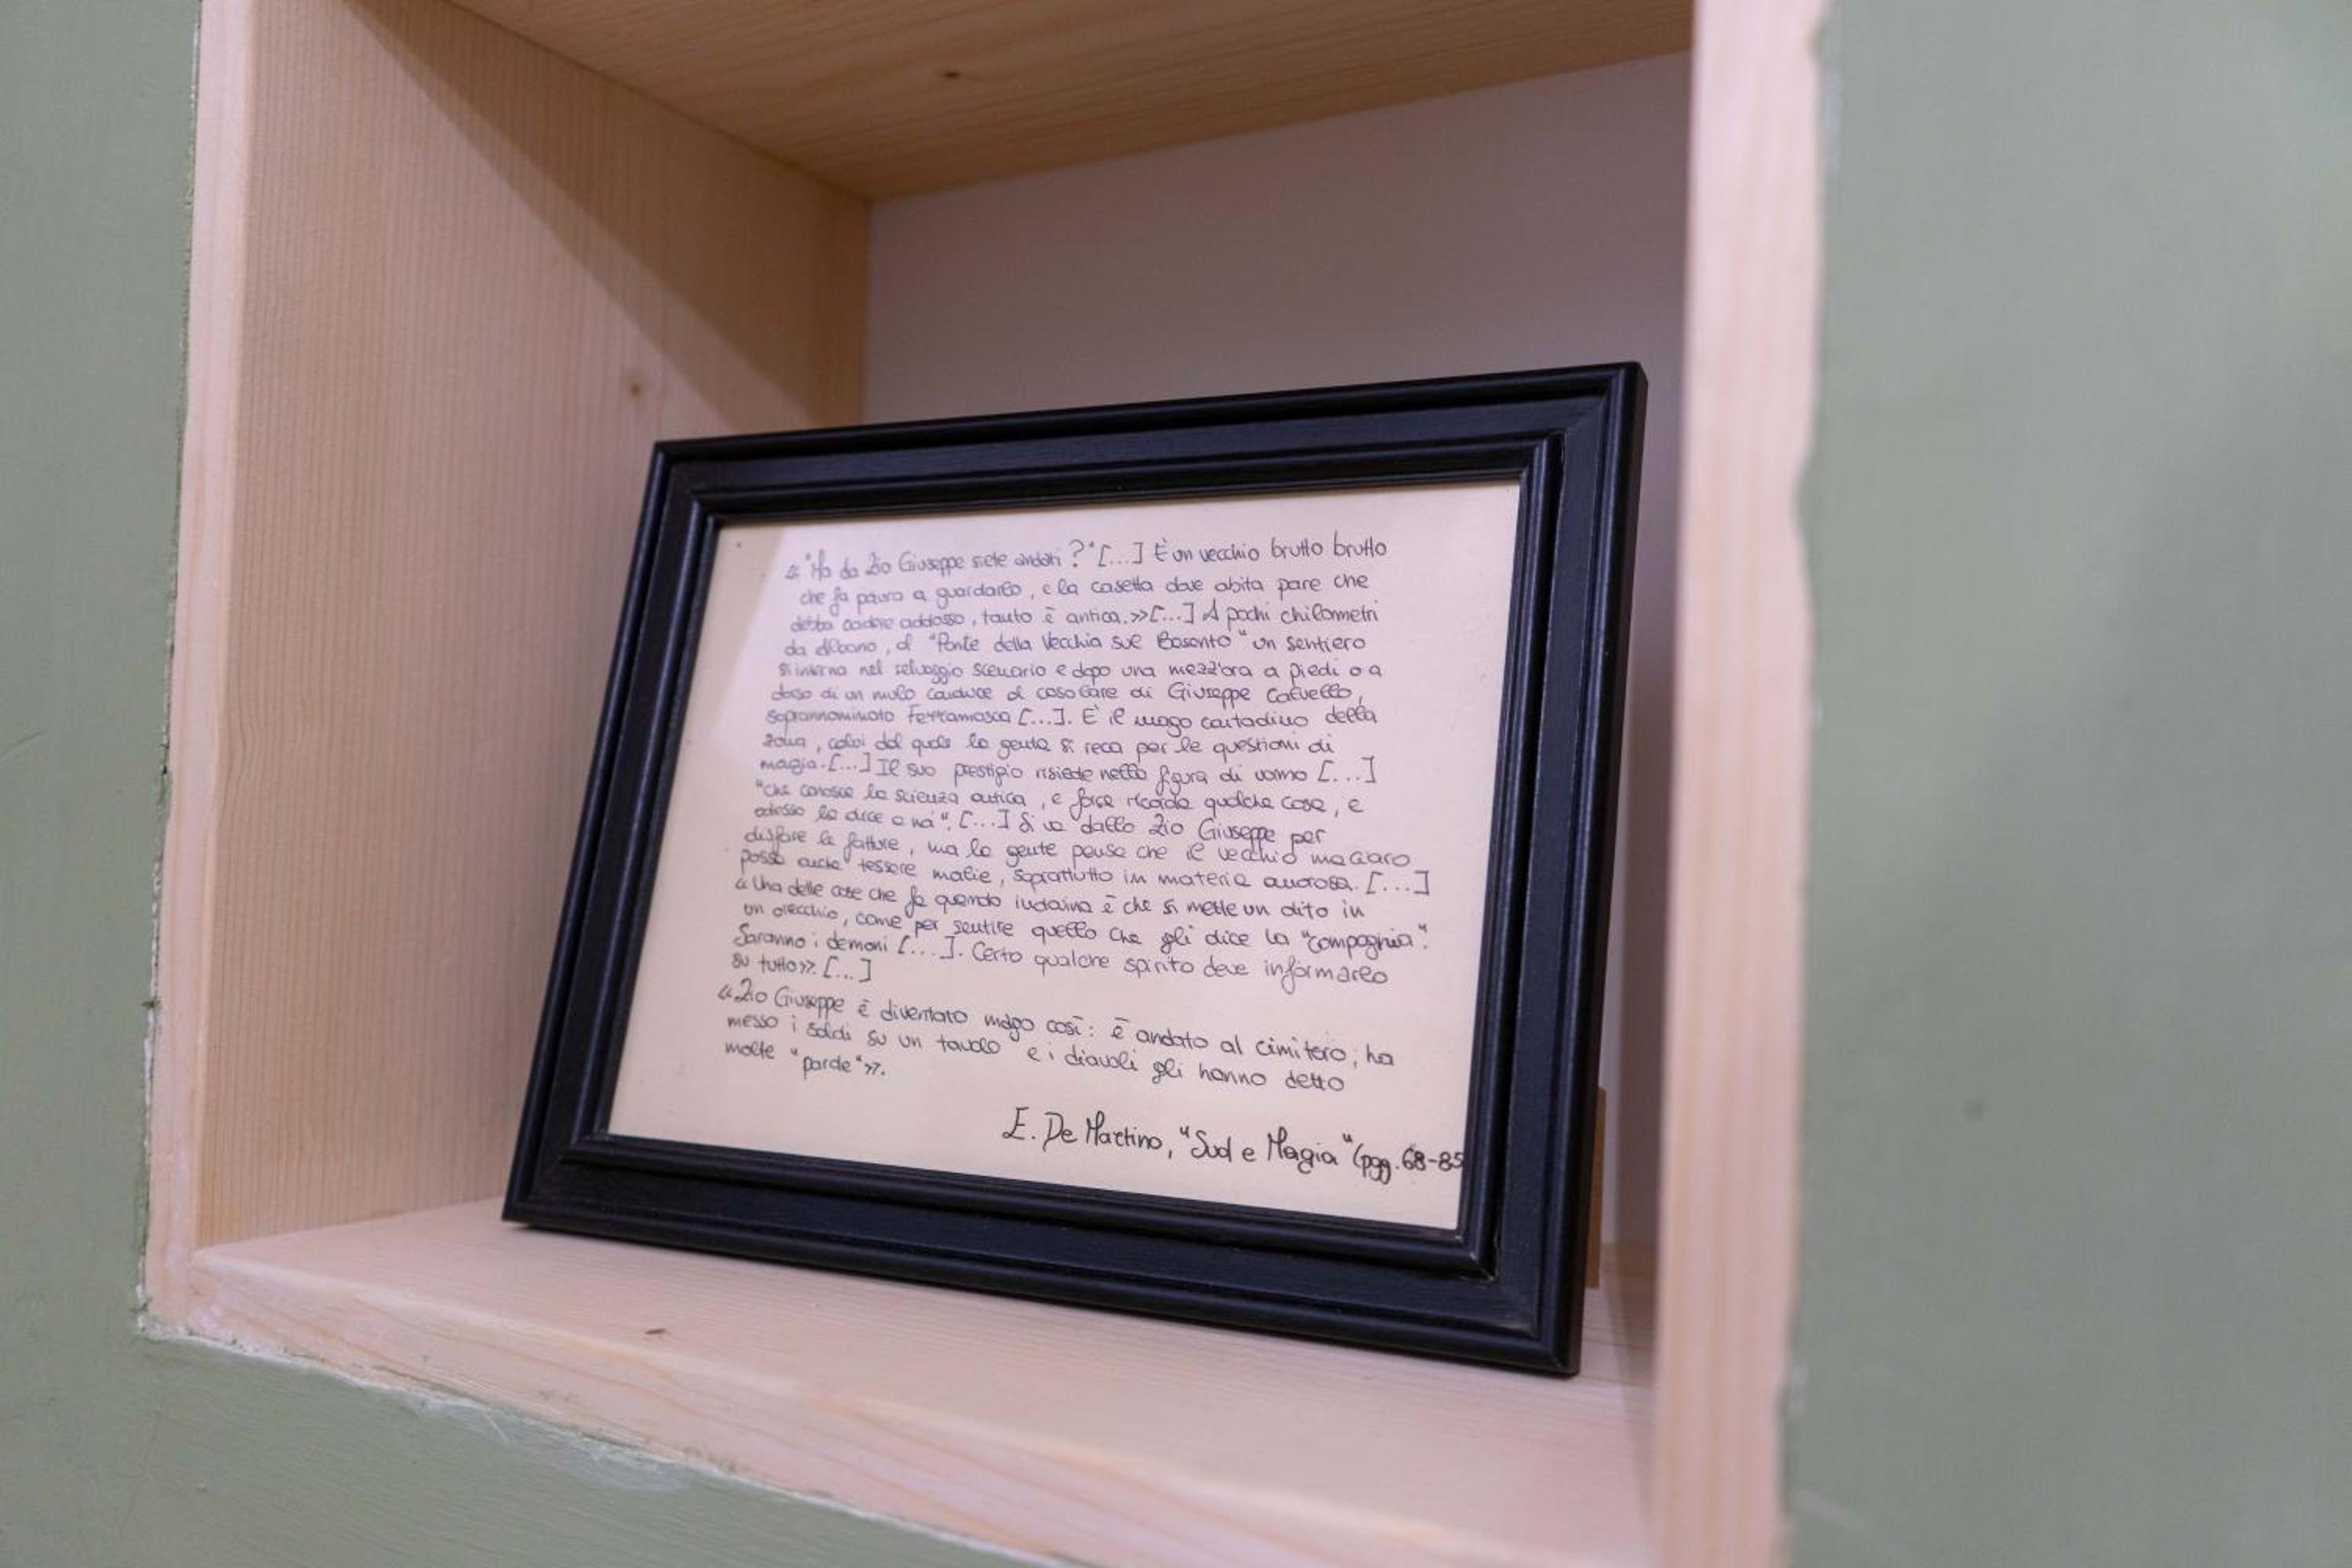 « "Ma da Zio Giuseppe siete andati ?" [...] È un vecchio brutto brutto
che fa paura a guardarlo, e la casetta dove abita pare che
debba cadere addosso, tanto è antica.»[...] A pochi chilometri
da Albano, al "Ponte della Vecchia sul Basento" un sentiero
si interna nel selvaggio scenario e dopo una mezz'ora a piedi o a
dorso di un mulo conduce al casolare di Giuseppe Calvello,
soprannominato Ferramosca [...]. È il mago contadino della
zona, colui dal quale la gente si reca per le questioni di
magia. [...] Il suo prestigio risiede nella figura di uomo [...]
"che conosce la scienza antica, e forse ricorda qualche cosa, e
adesso la dice a noi". [...] Si va dallo Zio Giuseppe per
disfare le fatture, ma la gente pensa che il vecchio maciaro
possa anche tessere malie, soprattutto in materia amorosa. [...]
« Una delle cose che fa quando indovina è che si mette un dito in
un orecchio, come per sentire quello che gli dice la "compagnia".
Saranno i demoni [...]. Certo qualche spirito deve informarlo
su tutto». [...]
« Zio Giuseppe è diventato mago così: è andato al cimitero, ha
messo i soldi su un tavolo e i diavoli gli hanno detto
molte "parole"».
E. De Martino, "Sud e Magia" (pgg. 68-85